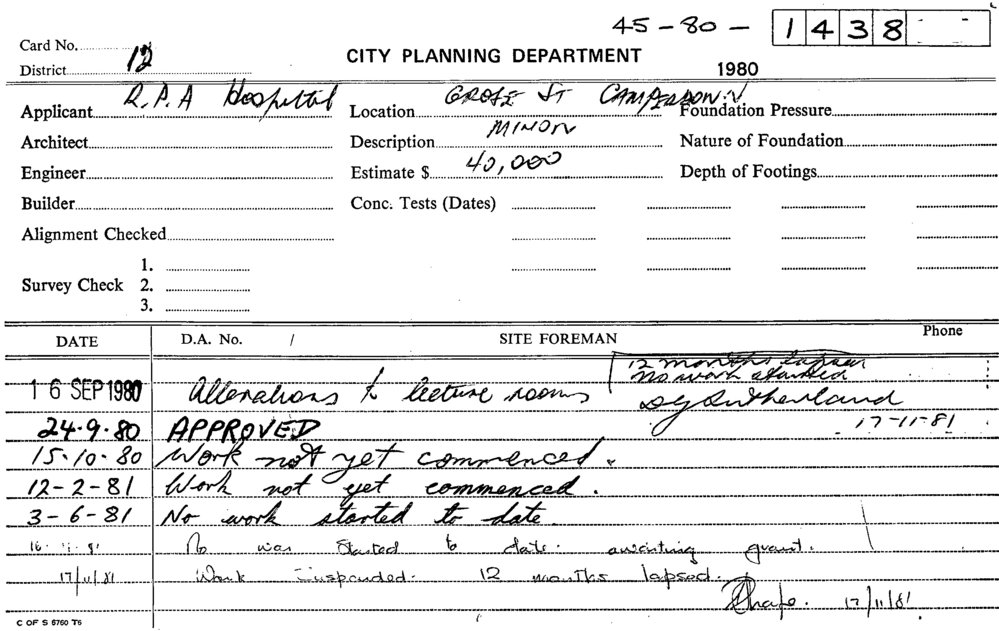 45-80- 1438
Card No.
District 12
CITY PLANNING DEPARTMENT
1980
Applicant R.P.A Hospital
Location GROSE ST CAMPERDOWN
Foundation Pressure
Architect
Description MINOR
Nature of Foundation
Engineer
Estimate $ 40,000
Depth of Footings
Builder
Conc. Tests (Dates)
Alignment Checked
Survey Check 1.
2.
3.
DATE D.A. No. / SITE FOREMAN Phone
12 months lapsed
No work started
16 SEP 1980 Alterations to lecture rooms
Sutherland
17-11-81
24.9.80 APPROVED
15.10.80 Work not yet commenced.
12-2-81 Work not yet commenced.
3-6-81 No work started to date
No was started to date. awaiting grant.
17/11/81 Work suspended. 12 months lapsed.
17/11/81
C OF S 6760 T6